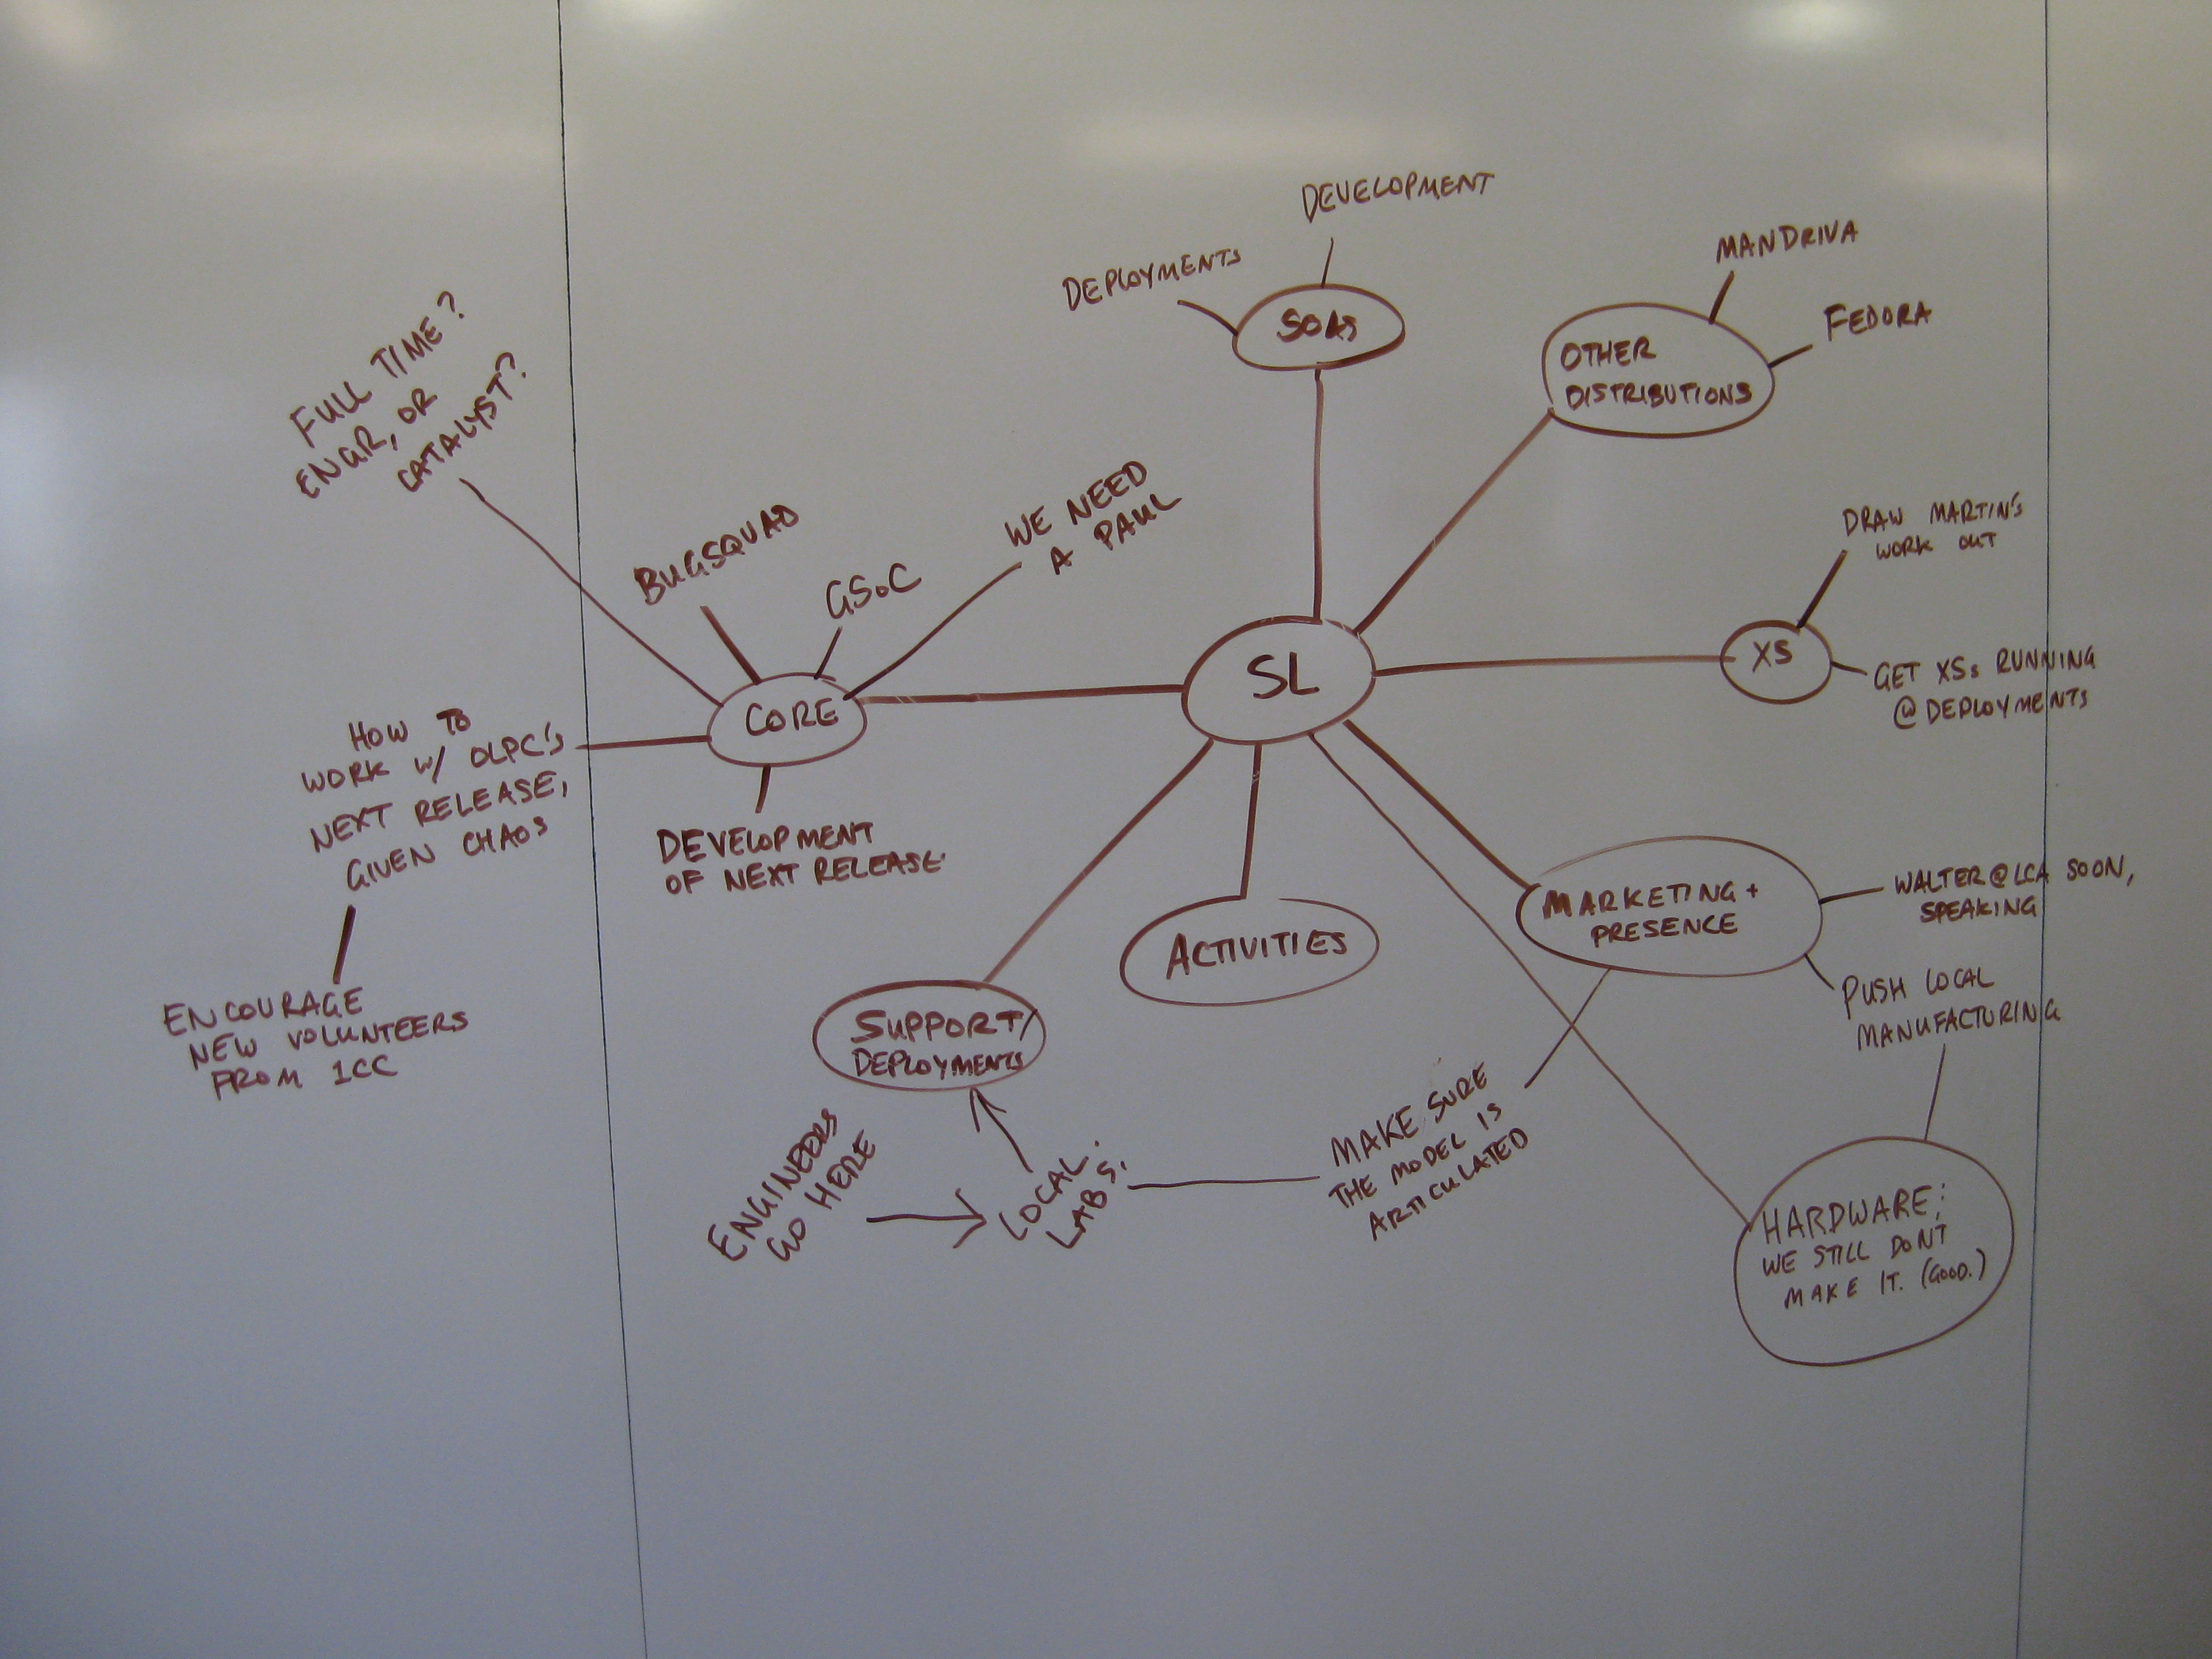 DEVELOPMENT
DEPLOYMENTS
SOAS
MANDRIVA
FEDORA
OTHER
DISTRIBUTIONS
FULL TIME?
ENGR, OR
CATALYST?
BUGSQUAD
GSoC
WE NEED
A PAUL
DRAW MARTIN'S
WORK OUT
XS
GET XSs RUNNING
@ DEPLOYMENTS
SL
CORE
HOW TO
WORK W/ OLPC'S
NEXT RELEASE,
GIVEN CHAOS
DEVELOPMENT
OF NEXT RELEASE
ENCOURAGE
NEW VOLUNTEERS
FROM 1CC
ACTIVITIES
MARKETING +
PRESENCE
WALTER@LCA SOON,
SPEAKING
PUSH LOCAL
MANUFACTURING
SUPPORT/
DEPLOYMENTS
ENGINEERS
GO HERE
LOCAL
LABS.
MAKE SURE
THE MODEL IS
ARTICULATED
HARDWARE:
WE STILL DON'T
MAKE IT. (GOOD.)